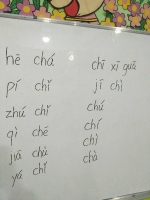 hē chá
pí chǐ
zhú chǐ
qì chē
jiā chù
yá chǐ
chī xī guā
jí chì
chú
chí
chì
chà